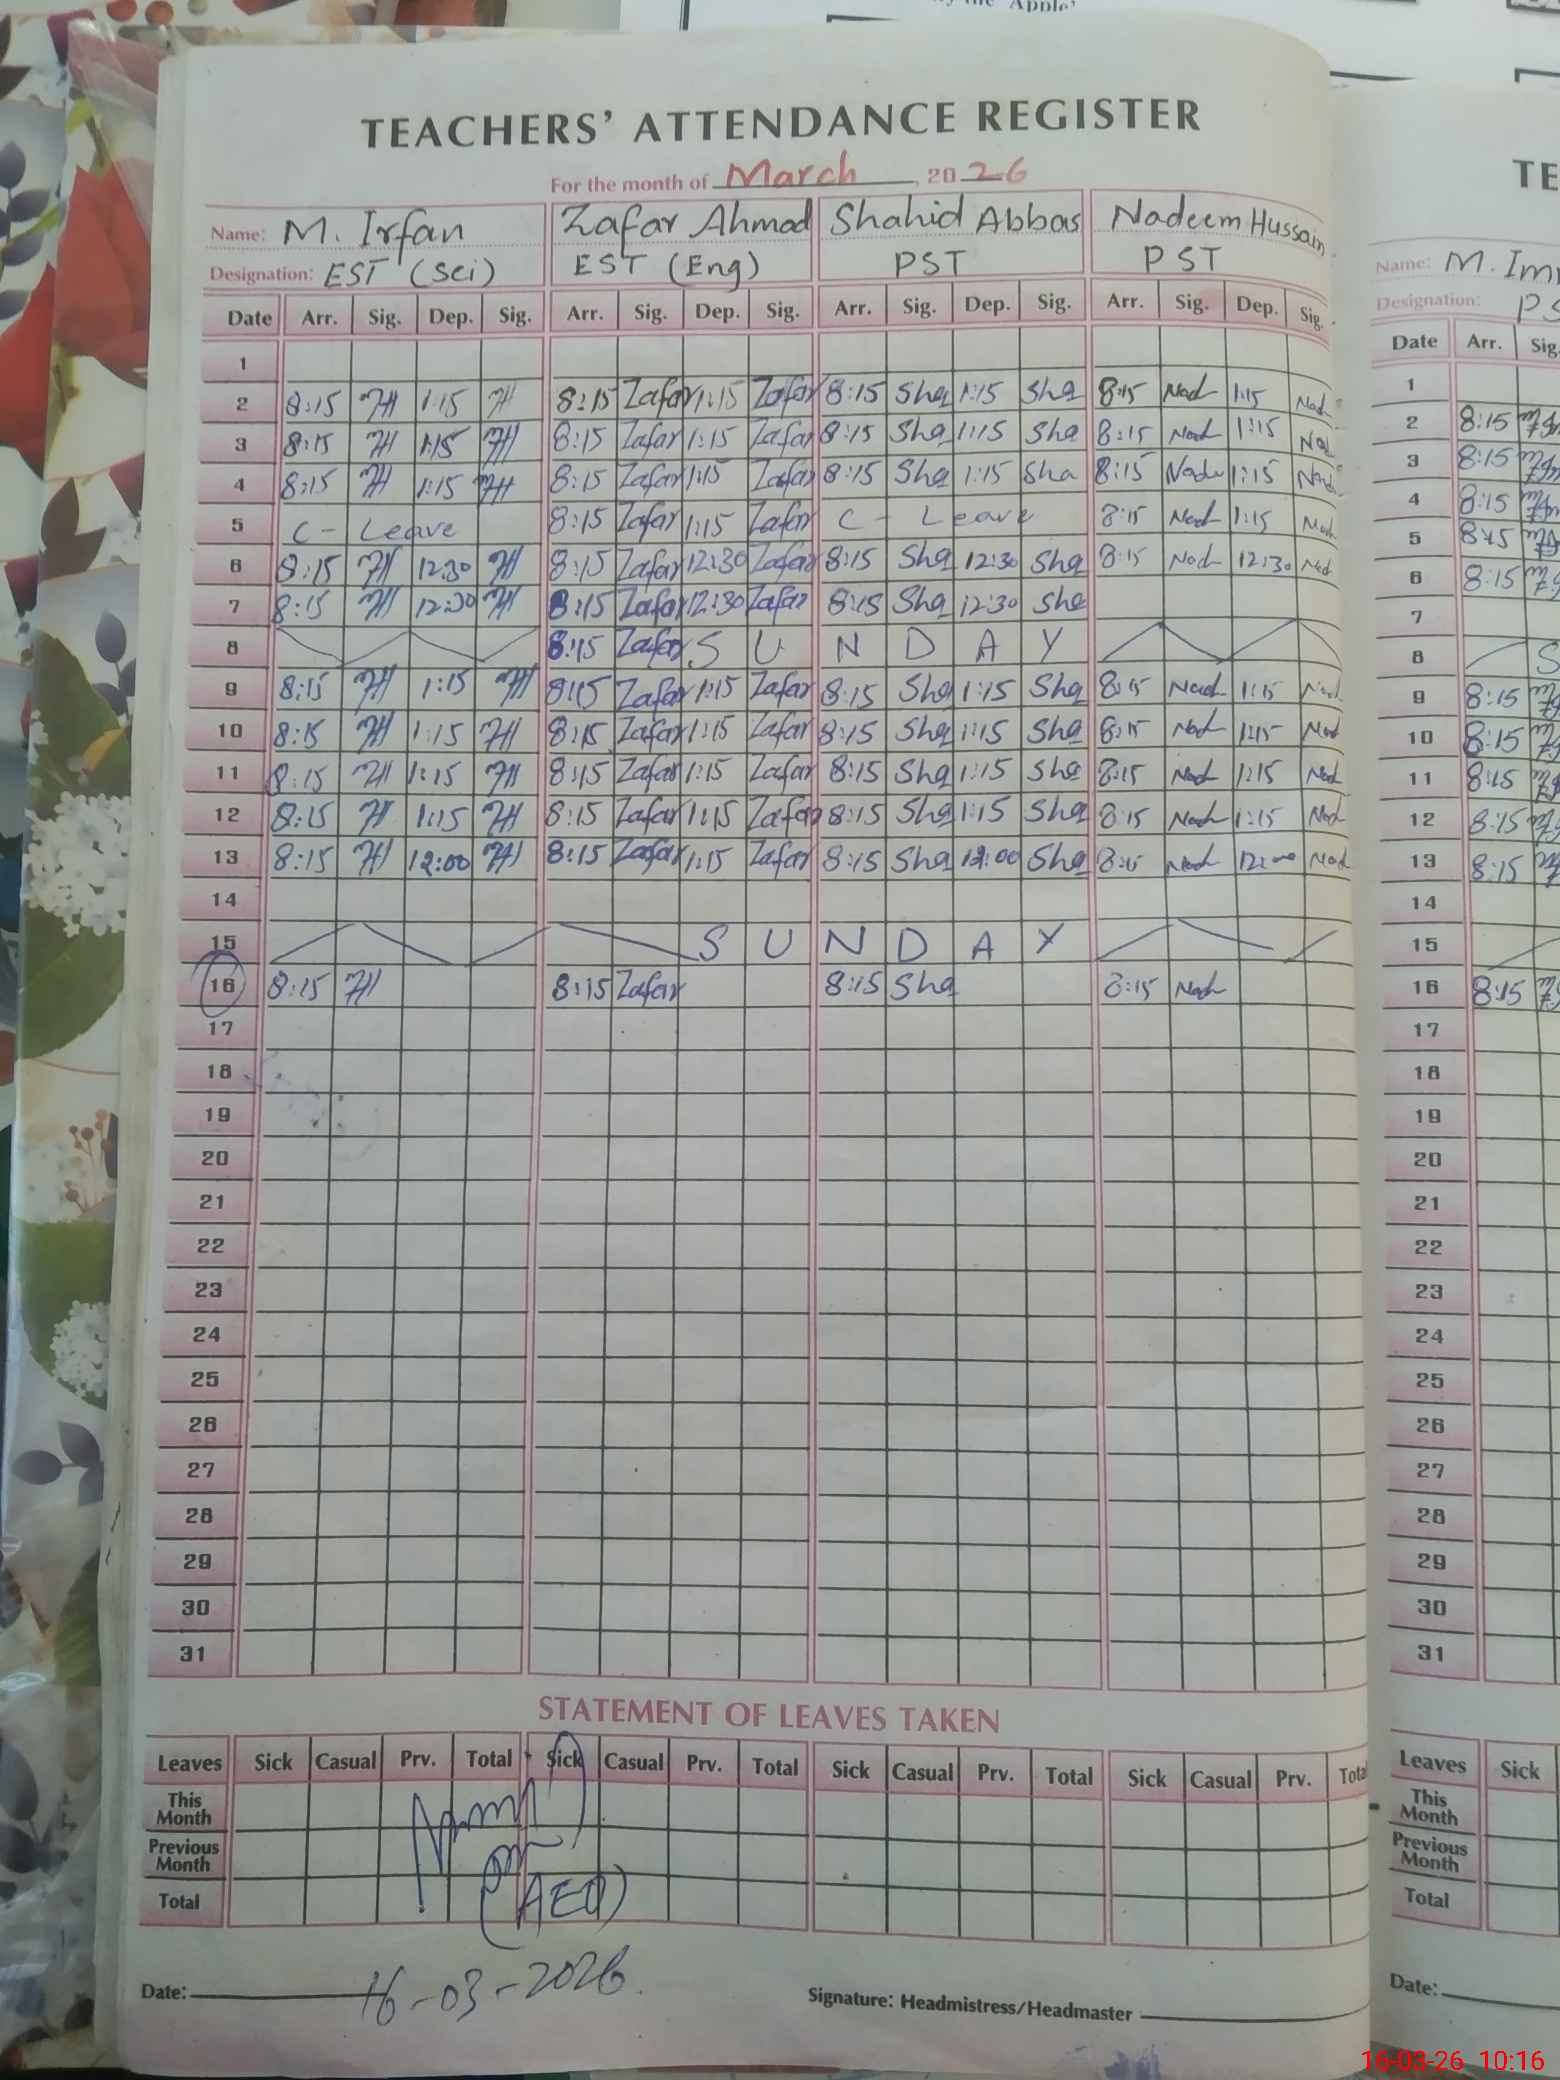 the 'Apple'
TEACHERS' ATTENDANCE REGISTER
For the month of March, 2026
Name: M. Irfan Zafar Ahmad Shahid Abbas Nadeem Hussain
Designation: EST (Sci) EST (Eng) PST PST
Date Arr. Sig. Dep. Sig. Arr. Sig. Dep. Sig. Arr. Sig. Dep. Sig. Arr. Sig. Dep. Sig.
1
2 8:15 1:15 8:15 Zafar 1:15 Zafar 8:15 Sha 1:15 Sha 8:15 Nad 1:15 Nad
3 8:15 1:15 8:15 Zafar 1:15 Zafar 8:15 Sha 1:15 Sha 8:15 Nad 1:15 Nad
4 8:15 1:15 8:15 Zafar 1:15 Zafar 8:15 Sha 1:15 Sha 8:15 Nad 1:15 Nad
5 C - Leave 8:15 Zafar 1:15 Zafar C - Leave 8:15 Nad 1:15 Nad
6 8:15 12:30 8:15 Zafar 12:30 Zafar 8:15 Sha 12:30 Sha 8:15 Nad 12:30 Nad
7 8:15 12:30 8:15 Zafar 12:30 Zafar 8:15 Sha 12:30 Sha
8 8:15 Zafar S U N D A Y
9 8:15 1:15 8:15 Zafar 1:15 Zafar 8:15 Sha 1:15 Sha 8:15 Nad 1:15 Nad
10 8:15 1:15 8:15 Zafar 1:15 Zafar 8:15 Sha 1:15 Sha 8:15 Nad 1:15 Nad
11 8:15 1:15 8:15 Zafar 1:15 Zafar 8:15 Sha 1:15 Sha 8:15 Nad 1:15 Nad
12 8:15 1:15 8:15 Zafar 1:15 Zafar 8:15 Sha 1:15 Sha 8:15 Nad 1:15 Nad
13 8:15 12:00 8:15 Zafar 1:15 Zafar 8:15 Sha 12:00 Sha 8:15 Nad 12:00 Nad
14
15 S U N D A Y
16 8:15 8:15 Zafar 8:15 Sha 8:15 Nad
17
18
19
20
21
22
23
24
25
26
27
28
29
30
31
STATEMENT OF LEAVES TAKEN
Leaves Sick Casual Prv. Total Sick Casual Prv. Total Sick Casual Prv. Total Sick Casual Prv. Total
This Month
Previous Month
Total
(AEO)
Date: 16-03-2026
Signature: Headmistress/Headmaster
TE
Name: M. Im
Designation: PS
Date Arr. Sig.
1
2 8:15
3 8:15
4 8:15
5 8:15
6 8:15
7
8 S
9 8:15
10 8:15
11 8:15
12 8:15
13 8:15
14
15
16 8:15
17
18
19
20
21
22
23
24
25
26
27
28
29
30
31
Leaves Sick
This Month
Previous Month
Total
Date:
16-03-26 10:16